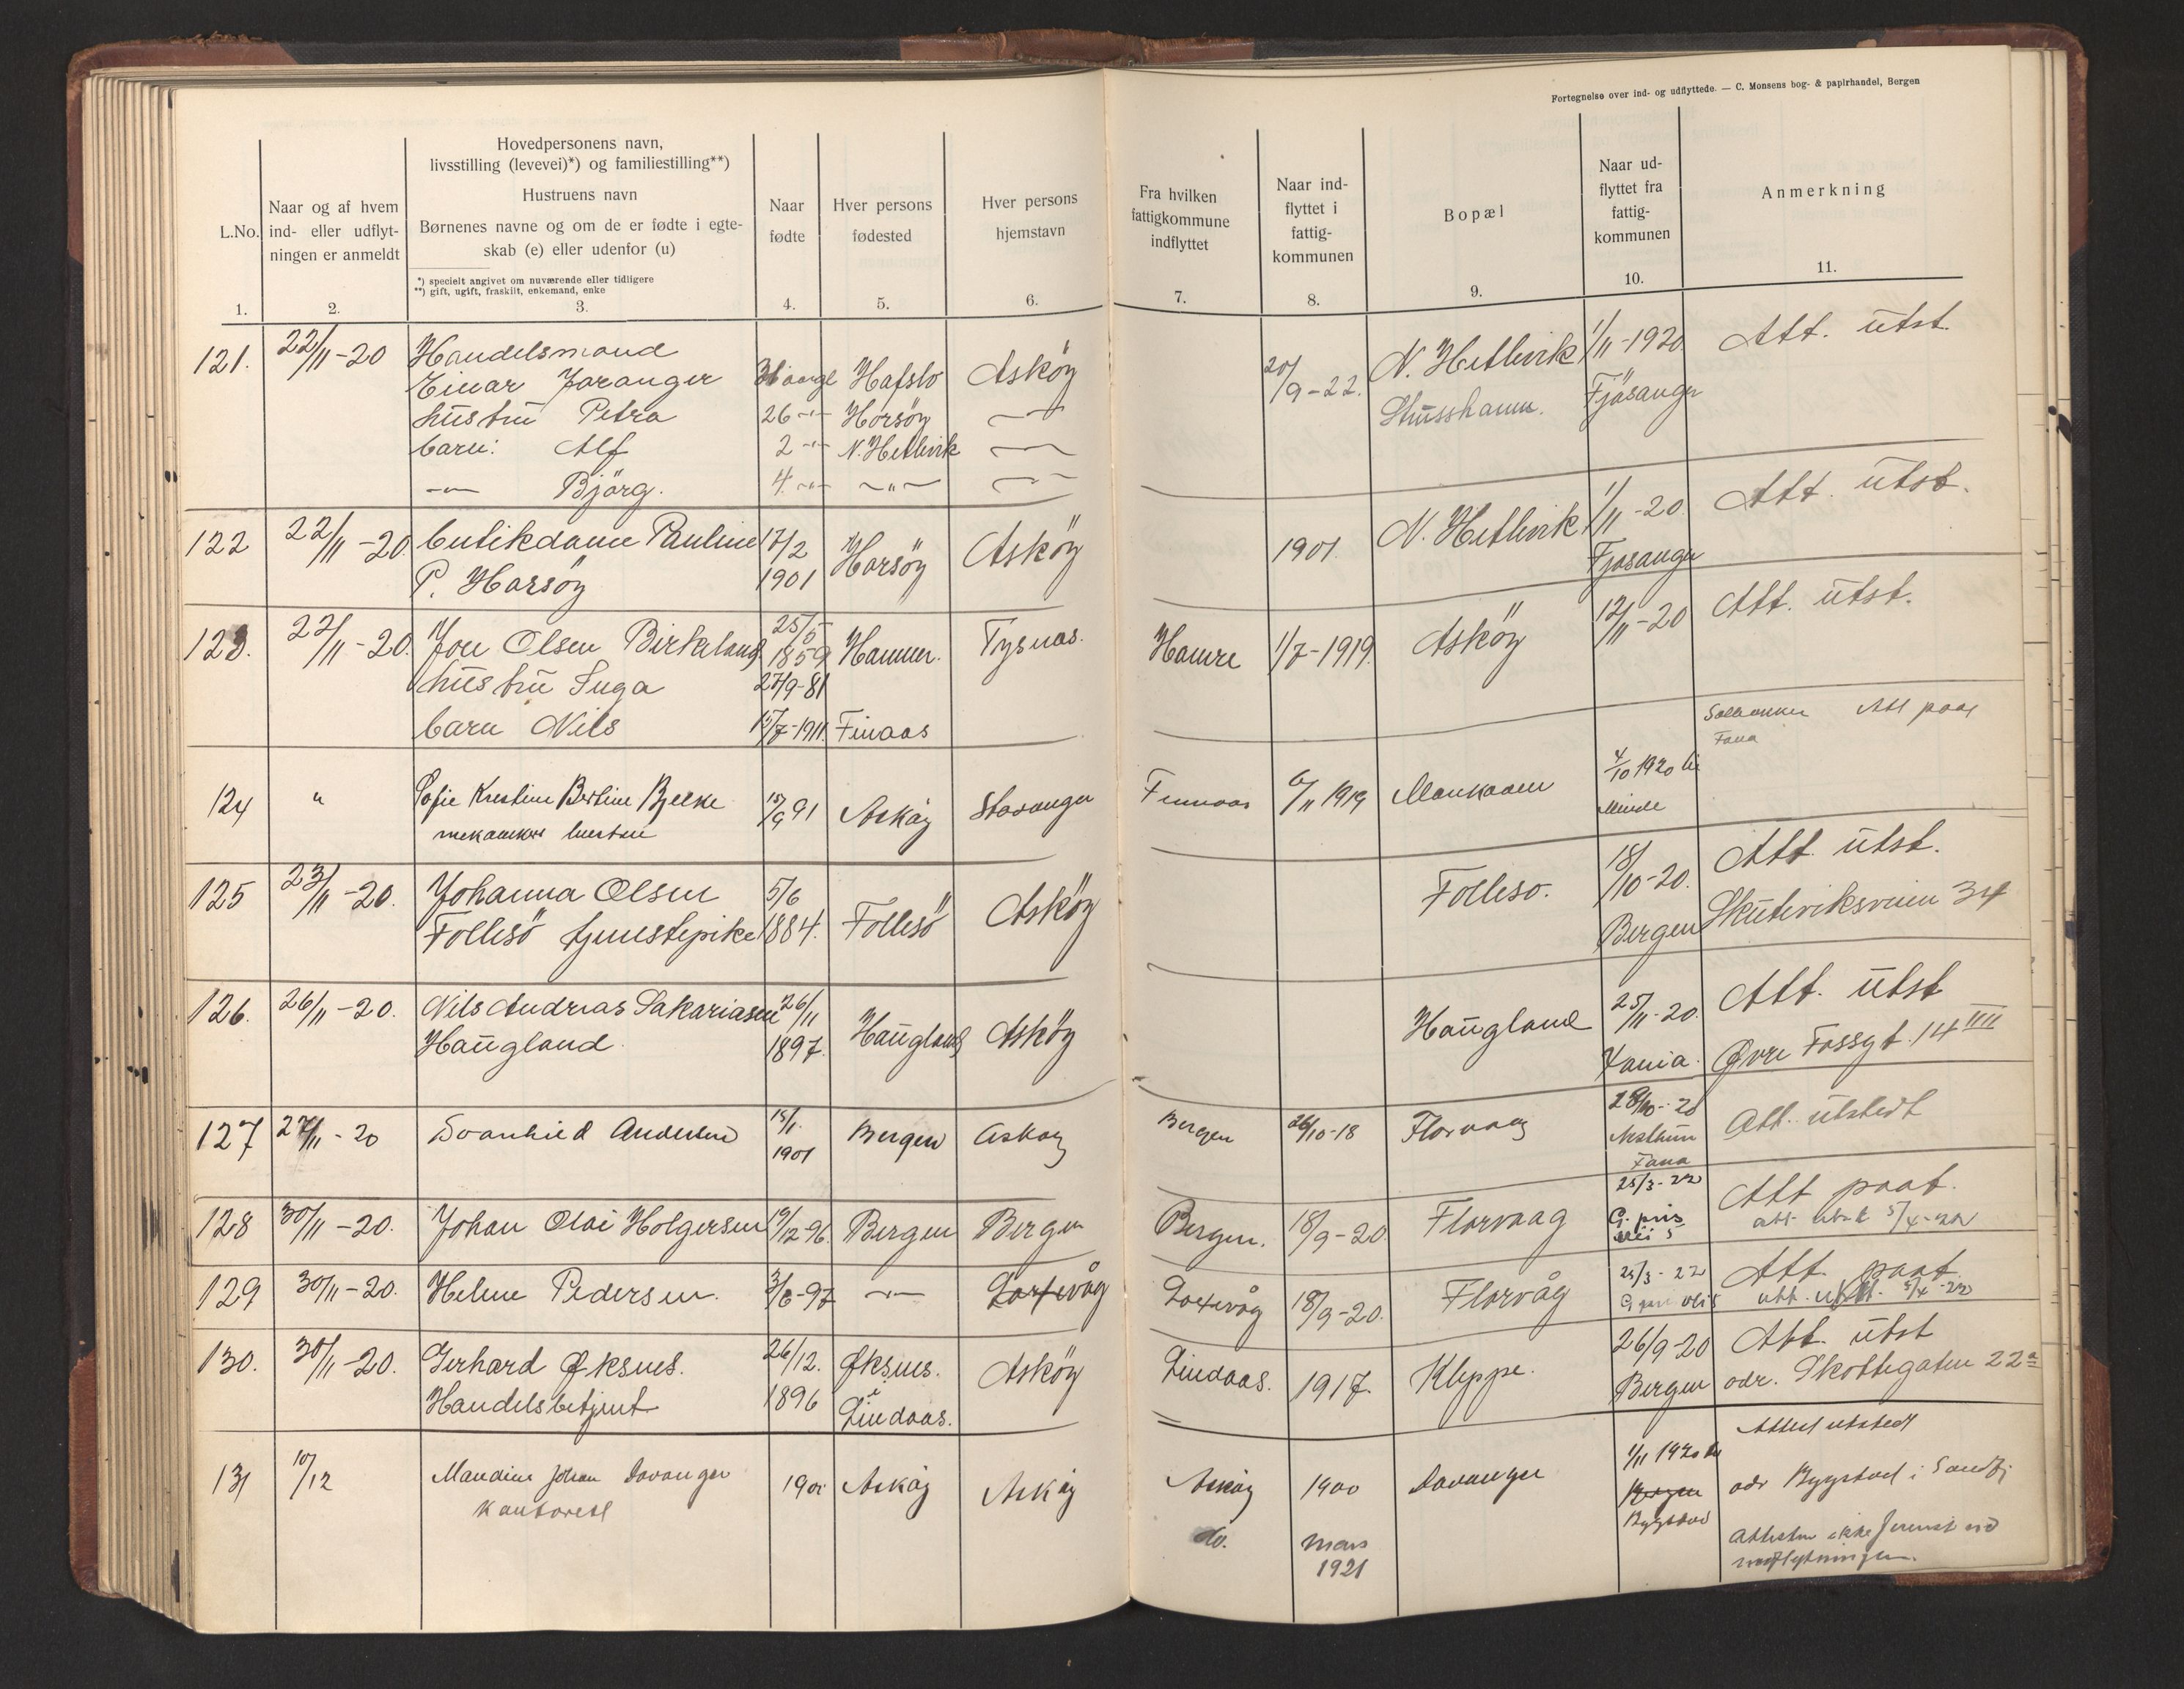 Fortegnelse over ind- og udflyttede. — C. Monsens bog- & papirhandel, Bergen
L.No.
1.
Naar og af hvem
ind- eller udflyt-
ningen er anmeldt
2.
Hovedpersonens navn,
livsstilling (levevei)*) og familiestilling**)
Hustruens navn
Børnenes navne og om de er fødte i egte-
skab (e) eller udenfor (u)
*) specielt angivet om nuværende eller tidligere
**) gift, ugift, fraskilt, enkemand, enke
3.
Naar
fødte
4.
Hver persons
fødested
5.
Hver persons
hjemstavn
6.
Fra hvilken
fattigkommune
indflyttet
7.
Naar ind-
flyttet i
fattig-
kommunen
8.
Bopæl
9.
Naar ud-
flyttet fra
fattig-
kommunen
10.
Anmerkning
11.
121. 22/11-20 Handelsmand
Einar Jaranger Hafslo Asköy 20/9-22. N. Hetlevik 1/11-1920 Att. utst.
hustru Petra 26 -"- Horsöy Fjösanger
barn: Alf 2 -"- N. Hetlevik
-"- Björg. 4 -"- -"-
122 22/11-20 butikdame Pauline 17/2 Horsöy Asköy 1901. N. Hetlevik 1/11-20 Att. utst.
P. Horsöy 1901 Fjøsanger
123. 22/11-20. Jon Olsen Birkeland 25/5 1859 Hammer. Tysnas. Hamre 1/7-1919. Asköy 12/11-20 Att. utst.
hustru Inga 27/9-81
barn Nils 15/7-1911. Finaas
Fana
124 " Sofie Kristine Bertine Bjelke 15/9 91 Askøy Stavanger Finnaas 6/11 1919 4/10 1920 til
mekanikers hustru Minde
125 23/11-20. Johanna Olsen 5/6 Follesö Asköy Folleso. 18/10-20. Att. utst.
Follesö tjenestepike 1884. Bergen Skuteviksveien 34
126. 26/11-20. Nils Andreas Sakariasen 26/11 Haugland Asköy Haugland 25/11-20. Att. utst
Haugland 1897. Xania. Øvre Fossgt. 14 IIII
127 27/11-20 Svanhild Andersen 15/1. Bergen Askøy Bergen 26/10-18 Florvaag 28/10-20 Att. utstedt
1901 Nesttun
Fana
128 30/11-20. Johan Olai Holgersen 9/12-96. Bergen Bergen Bergen. 18/9-20. Florvaag 25/3-22 Att paat.
att. utst 5/4-22
129 30/11-20. Helene Pedersen. 3/6-97 -"- Laxevåg Laxevåg 18/9-20. Florvåg 25/3-22 Att. paat
att. utst. 5/4-22
130. 30/11-20. Gerhard Øksnes. 26/12. Øksnes. Asköy Lindaas. 1917. Kleppe. 26/9-20 Att. utst
Handelsbetjent 1896 i Lindaas. Bergen adr. Skottegaten 22a
131 10/12 Mandine Johan Davanger 1900 Askøy Askøy Askøy 1900 Davanger 1/11 1920 til Attest utstedt
Kontorist Bergen adr Bygstad i Søndfj
Bygstad
do. mars
1921